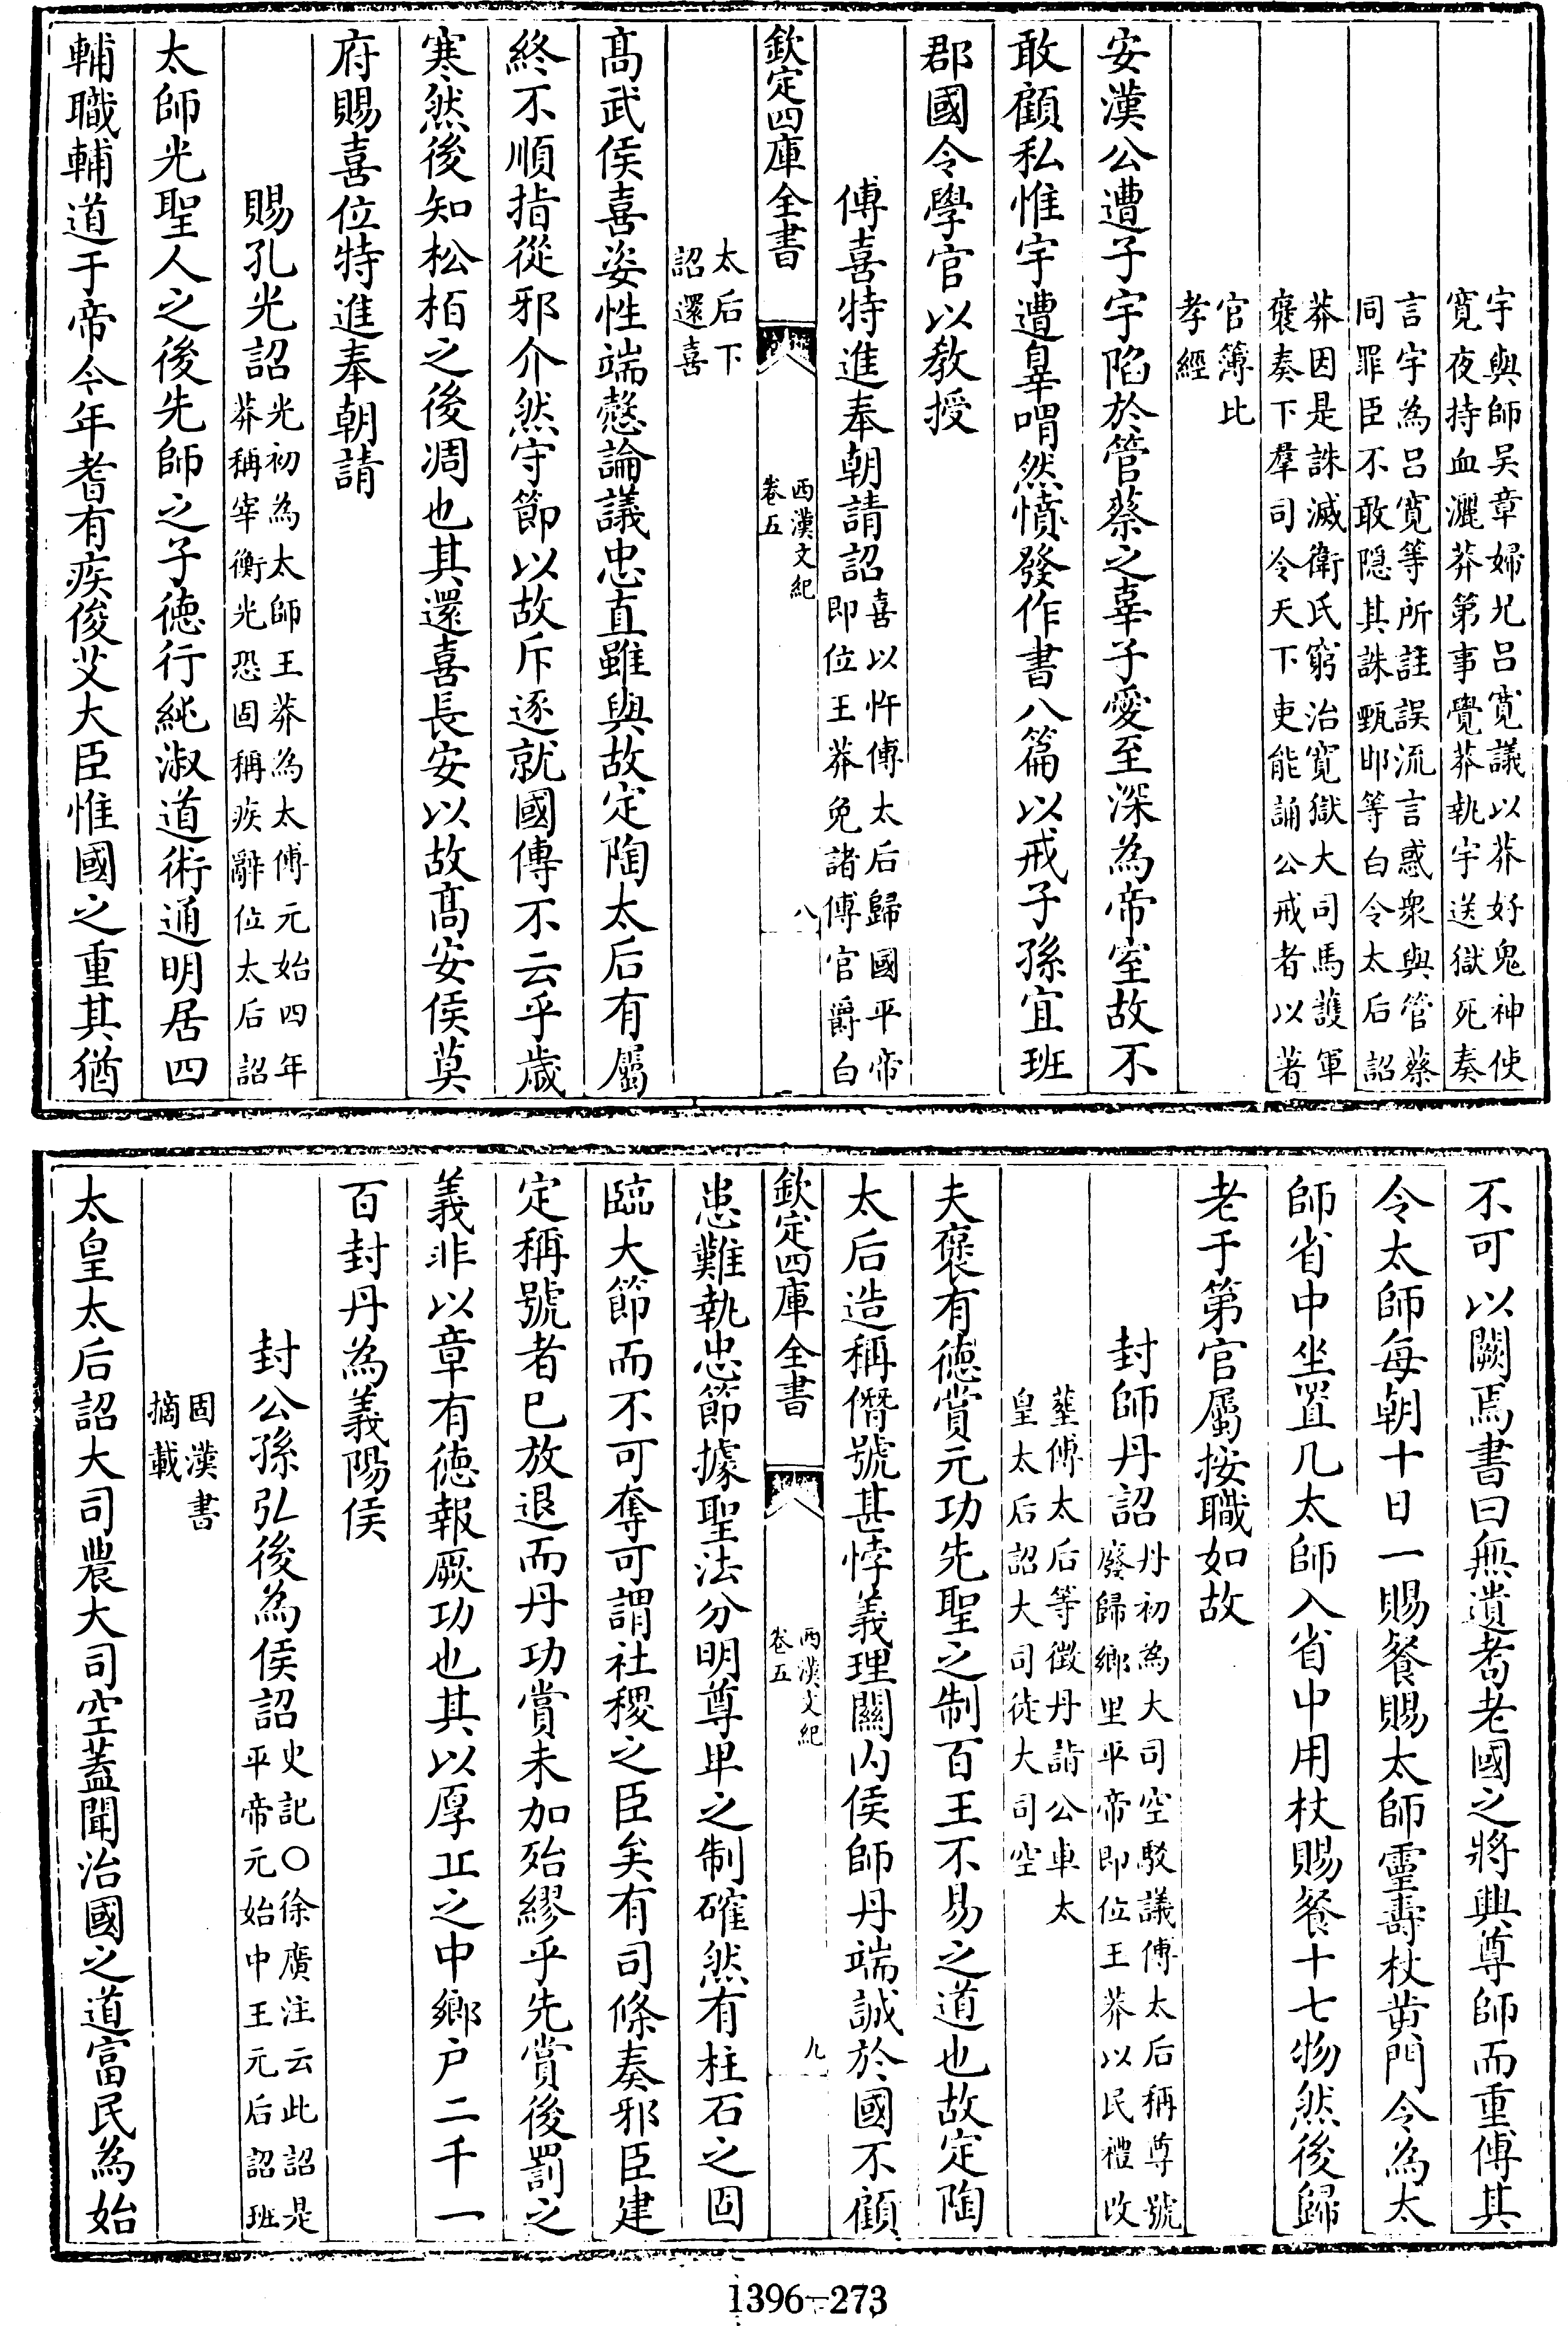 宇與師吴章婦兄吕寛議以莽好鬼神使
寛夜持血灑莽第事覺莽執宇送獄死奏
言宇為吕寛等所詿誤流言惑衆與管蔡
同罪臣不敢隠其誅甄邯等白令太后詔
莽因是誅滅衛氏窮治寛獄大司馬護軍
襃奏下羣司令天下吏能誦公戒者以著
官簿比
孝經
安漢公遭子宇陷於管蔡之辜子愛至深為帝室故不
敢顧私惟宇遭辠喟然憤發作書八篇以戒子孫宜班
郡國令學官以教授
傅喜特進奉朝請詔喜以忤傅太后歸國平帝
即位王莽免諸傅官爵白
欽定四庫全書
西漢文紀
卷五
八
太后下
詔還喜
髙武侯喜姿性端慤論議忠直雖與故定陶太后有屬
終不順指從邪介然守節以故斥逐就國傳不云乎歲
寒然後知松栢之後凋也其還喜長安以故髙安侯莫
府賜喜位特進奉朝請
賜孔光詔光初為太師王莽為太傅元始四年
莽稱宰衡光恐固稱疾辭位太后詔
太師光聖人之後先師之子徳行純淑道術通明居四
輔職輔道于帝今年耆有疾俊艾大臣惟國之重其猶
不可以闕焉書曰無遺耉老國之將興尊師而重傅其
令太師毎朝十日一賜餐賜太師靈壽杖黄門令為太
師省中坐置几太師入省中用杖賜餐十七物然後歸
老于第官屬按職如故
封師丹詔丹初為大司空駁議傅太后稱尊號
廢歸鄉里平帝即位王莽以民禮改
葬傅太后等徴丹詣公車太
皇太后詔大司徒大司空
夫襃有徳賞元功先聖之制百王不易之道也故定陶
太后造稱僭號甚悖義理關内侯師丹端誠於國不顧
欽定四庫全書
西漢文紀
卷五
九
患難執忠節據聖法分明尊卑之制確然有柱石之固
臨大節而不可奪可謂社稷之臣矣有司條奏邪臣建
定稱號者已放退而丹功賞未加殆繆乎先賞後罰之
義非以章有徳報厥功也其以厚丘之中鄉户二千一
百封丹為義陽侯
封公孫弘後為侯詔史記○徐廣注云此詔是
平帝元始中王元后詔班
固漢書
摘載
太皇太后詔大司農大司空蓋聞治國之道富民為始
1396-273